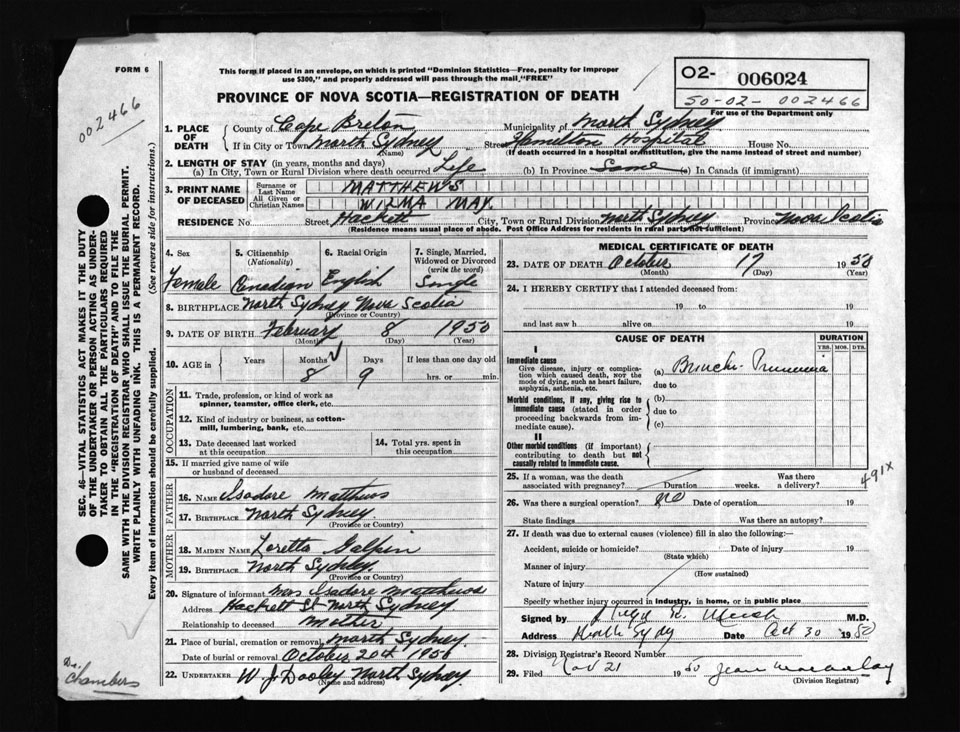 FORM 6
This form if placed in an envelope, on which is printed "Dominion Statistics—Free, penalty for improper
use $300," and properly addressed will pass through the mail "FREE"
02- 006024
50-02- 002466
For use of the Department only
002466
PROVINCE OF NOVA SCOTIA—REGISTRATION OF DEATH
1. PLACE OF DEATH
County of Cape Breton Municipality of North Sydney
If in City or Town North Sydney Street Hamilton Hospital House No.
(Name) (If death occurred in a hospital or institution, give the name instead of street and number)
2. LENGTH OF STAY (in years, months and days)
(a) In City, Town or Rural Division where death occurred Life (b) In Province Same (c) In Canada (if immigrant)
3. PRINT NAME OF DECEASED
Surname or Last Name MATTHEWS
All Given or Christian Names WILMA MAY.
RESIDENCE No. Street Hackett City, Town or Rural Division North Sydney Province Nova Scotia
(Residence means usual place of abode. Post Office Address for residents in rural parts not sufficient)
4. Sex 5. Citizenship (Nationality) 6. Racial Origin 7. Single, Married, Widowed or Divorced (write the word)
Female Canadian English Single
8. BIRTHPLACE North Sydney Nova Scotia
(Province or Country)
9. DATE OF BIRTH February 8 1950
(Month) (Day) (Year)
10. AGE in Years Months Days If less than one day old
8 9 hrs. or min.
OCCUPATION
11. Trade, profession, or kind of work as
spinner, teamster, office clerk, etc.
12. Kind of industry or business, as cotton-
mill, lumbering, bank, etc.
13. Date deceased last worked
at this occupation
14. Total yrs. spent in
this occupation
15. If married give name of wife
or husband of deceased
FATHER
16. NAME Isadore Matthews
17. BIRTHPLACE North Sydney
(Province or Country)
MOTHER
18. MAIDEN NAME Loretta Galpin
19. BIRTHPLACE North Sydney.
(Province or Country)
20. Signature of informant Mrs Isadore Matthews
Address Hackett St North Sydney
Relationship to deceased Mother
21. Place of burial, cremation or removal North Sydney
Date of burial or removal October 20th 1950
22. UNDERTAKER W. J. Dooley North Sydney.
(Name and address)
MEDICAL CERTIFICATE OF DEATH
23. DATE OF DEATH October 17 1950
(Month) (Day) (Year)
24. I HEREBY CERTIFY that I attended deceased from:
19 to 19
and last saw h alive on 19
CAUSE OF DEATH DURATION
YRS. MOS. DYS.
I
Immediate cause
Give disease, injury or complica-
tion which caused death, NOT the
mode of dying, such as heart failure,
asphyxia, asthenia, etc.
(a) Broncho Pneumonia
due to
Morbid conditions, if any, giving rise to
immediate cause (stated in order
proceeding backwards from im-
mediate cause).
(b)
due to
(c)
II
Other morbid conditions (if important)
contributing to death but not
causally related to immediate cause.
491X
25. If a woman, was the death
associated with pregnancy? Duration weeks. Was there
a delivery?
26. Was there a surgical operation? No Date of operation 19
State findings Was there an autopsy?
27. If death was due to external causes (violence) fill in also the following:
Accident, suicide or homicide? Date of injury 19
(State which)
Manner of injury
(How sustained)
Nature of injury
Specify whether injury occurred in industry, in home, or in public place
Signed by M.D.
Address North Sydney Date Oct 30 1950
28. Division Registrar's Record Number
29. Filed Nov 21 1950 Jean
(Division Registrar)
SEC. 46—VITAL STATISTICS ACT MAKES IT THE DUTY
OF THE UNDERTAKER OR PERSON ACTING AS UNDER-
TAKER TO OBTAIN ALL THE PARTICULARS REQUIRED
IN THE "REGISTRATION OF DEATH" AND TO FILE THE
SAME WITH THE DIVISION REGISTRAR WHO SHALL ISSUE THE BURIAL PERMIT.
WRITE PLAINLY WITH UNFADING INK. THIS IS A PERMANENT RECORD.
Every item of information should be carefully supplied. (See reverse side for instructions.)
Dr. Chambers